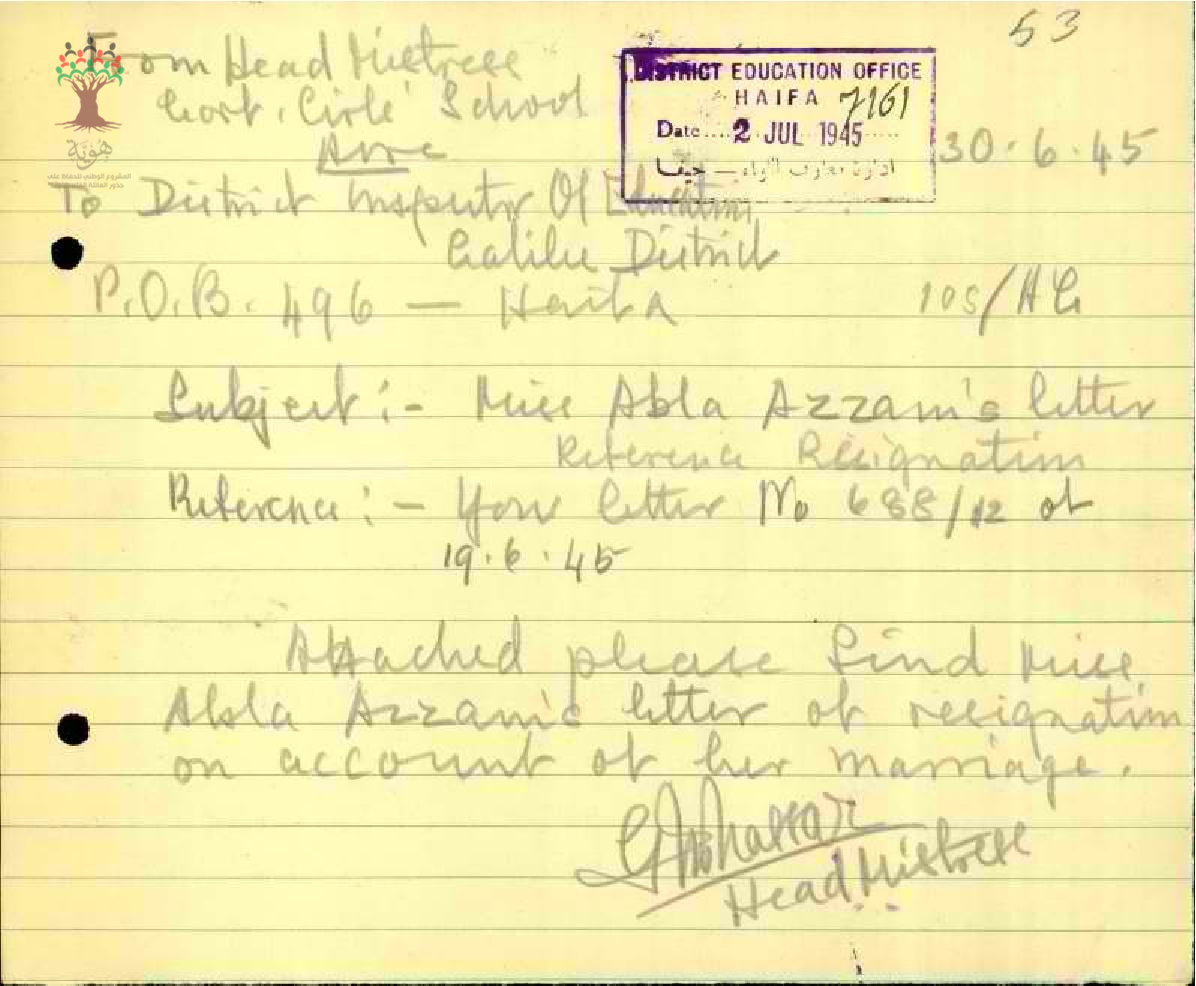 53
From Head Mistress
Govt. Girls' School
Acre
DISTRICT EDUCATION OFFICE
HAIFA 7161
Date.... 2 JUL 1945
ادارة معارف اللواء — حيفا
30.6.45
هوية
المشروع الوطني للحفاظ على
To District Inspector Of Education
Galilee District
P.O.B. 496 — Haifa 105/AG
Subject :- Miss Abla Azzam's letter
Reference Resignation
Reference :- Your letter No 688/12 of
19.6.45
Attached please find Miss
Abla Azzam's letter of resignation
on account of her marriage.
Head Mistress